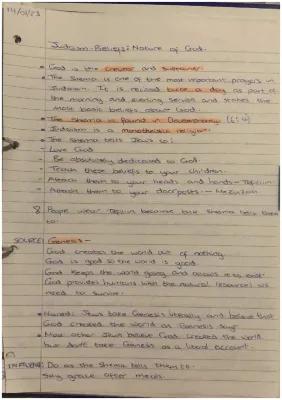 14/01/23
Judaism - Beliefs: Nature of God.
• God is the creator and sustainer.
• The Shema is one of the most important prayers in
Judaism. It is recited twice a day as part of
the morning and evening service and states the
most basic beliefs about God.
• The Shema is found in Deuteronomy (6:4)
• Judaism is a monotheistic religion.
• The Shema tells Jews to:
- Love God
- Be absolutely dedicated to God
- Teach these beliefs to your children.
- Attach them to your heads and hands - Tefillin
- Attach them to your doorposts - Mezuzah
People wear Tefillin because the Shema tells them
to.
SOURCE: Genesis -
God creates the world out of nothing
God is good so the world is good
God keeps the world going and allows it to
God provides humans with the natural resources we
need to survive.
• Jews take Genesis literally and believe that
God created the world as Genesis says
• Most other Jews believe God created the world
but don't take Genesis as a literal account.
INFLUENCE: Do as the Shema tells them to.
Say grace after meals.